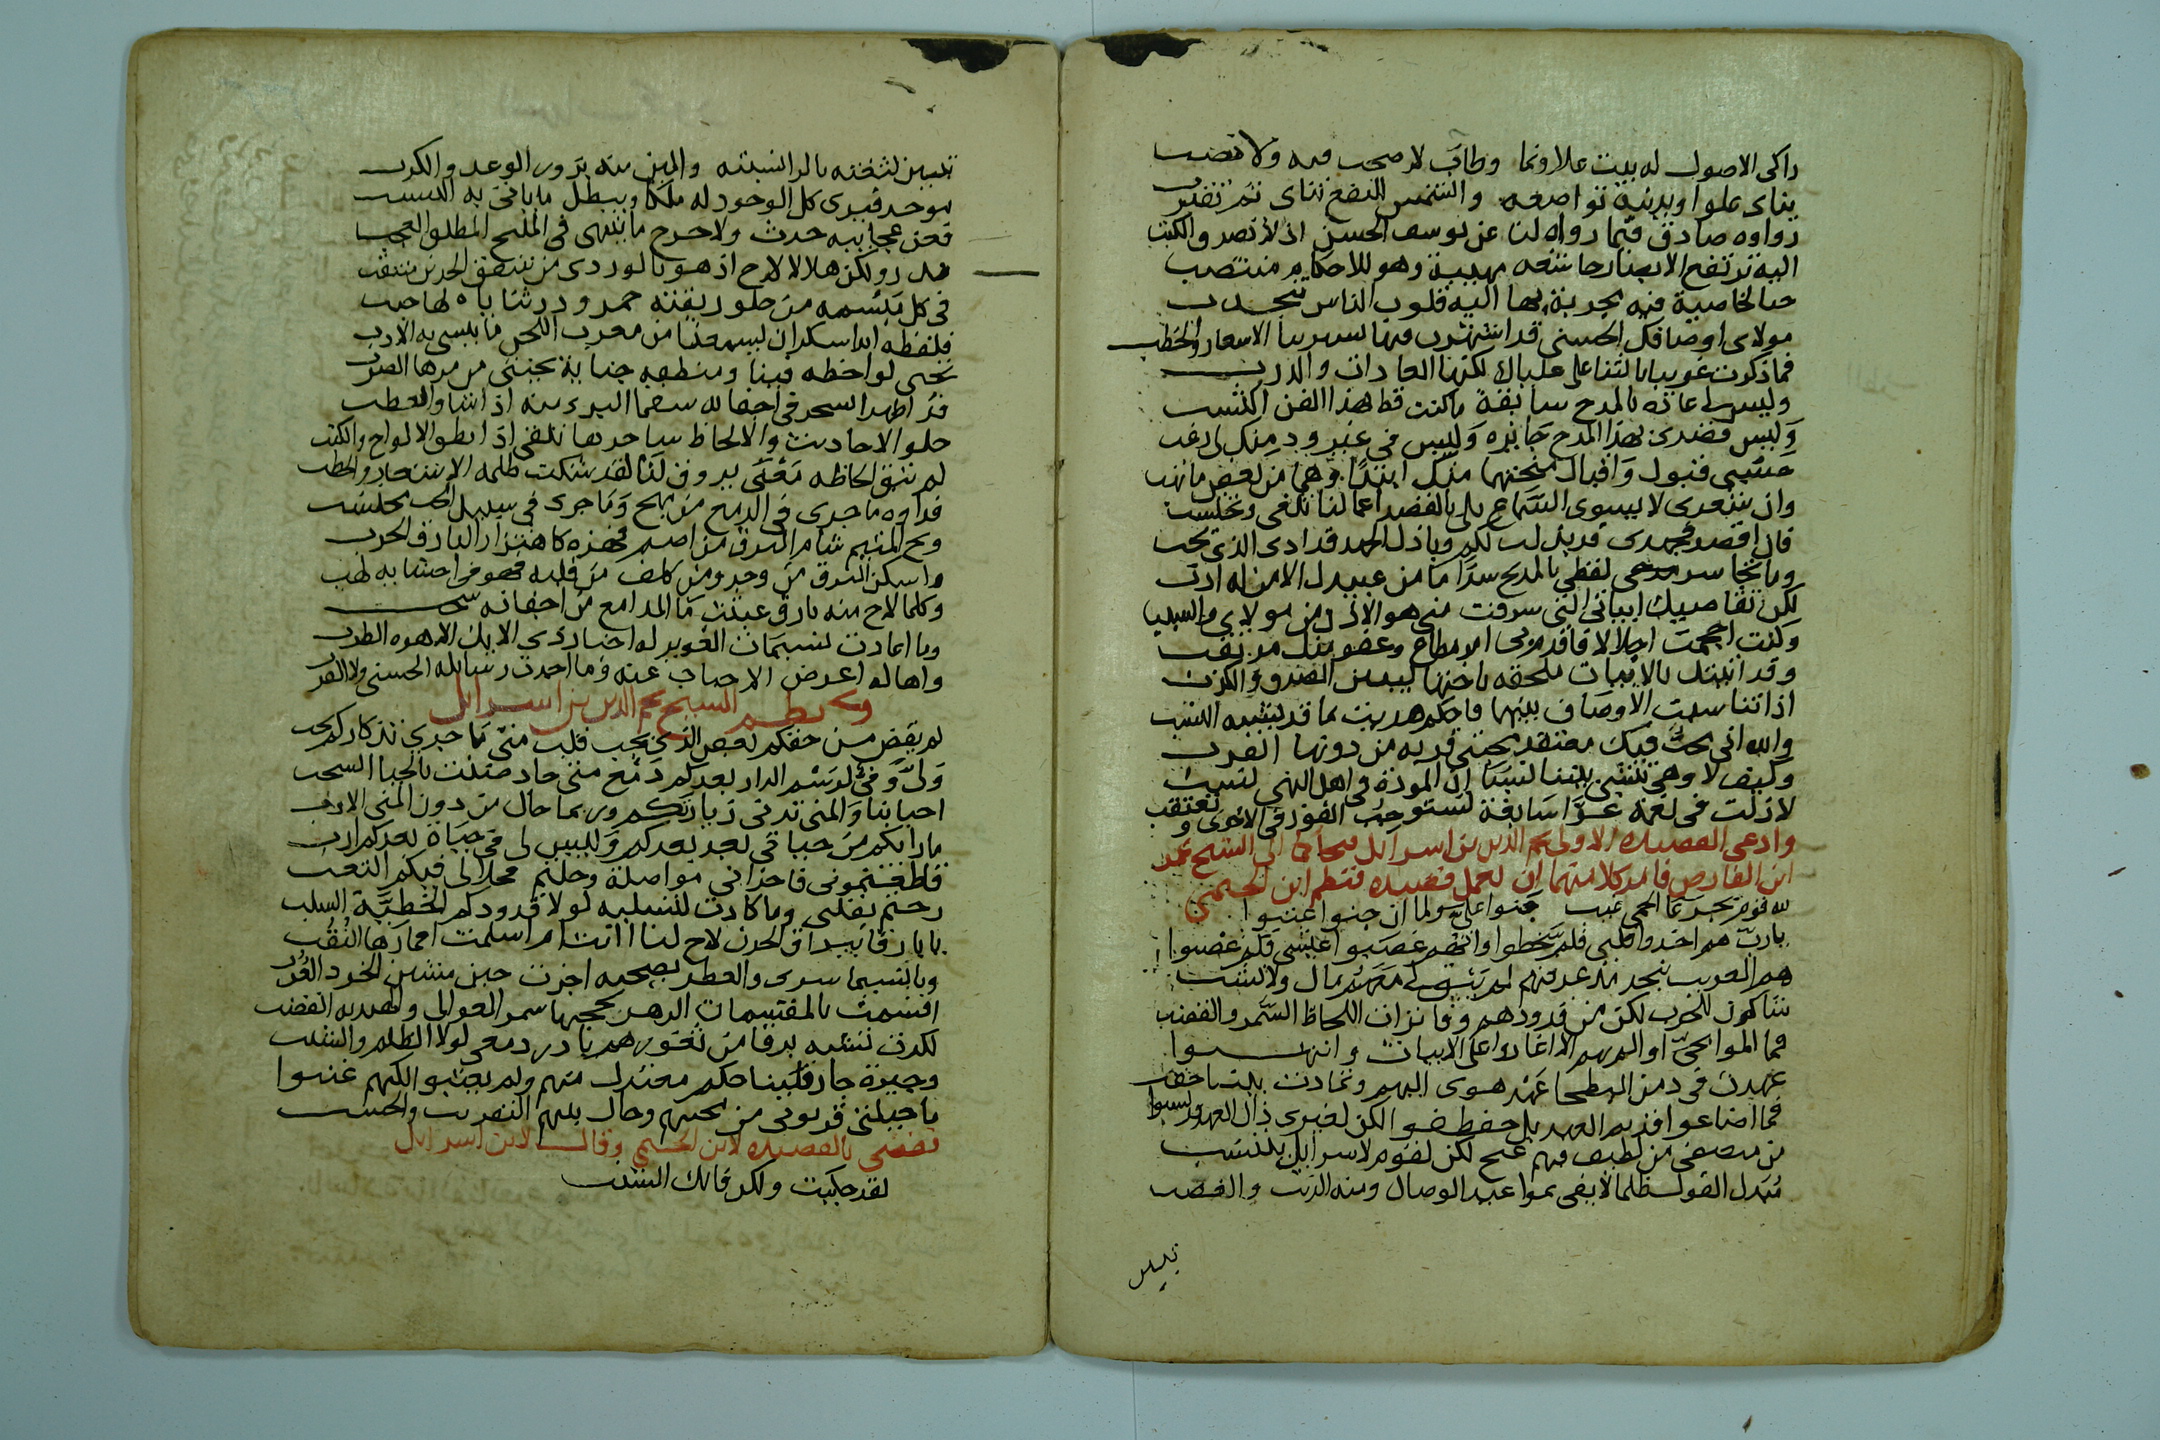 زاكى الاصول له بيت علا ونما وطاب لا صخب فيه ولا نصب
ينأى علوا ويدنيه تواضعه والشمس للنفع تنأى ثم تقترب
رواوه صادق فيما رواه لنا عن يوسف الحسن اذ
اليه ترتفع الابصار خاشعة مهيبة وهو للاحكام منتصب
لخاصية فيه مجربة بها اليه قلوب الناس تنجذب
مولاى اوصافك الحسنى قد اشتهرت الاسعار والخطب
فما ذكرت غريبا بالثنا على علياك لكنها العادات والدرب
وليس لى عادة بالمدح سابقة ما كنت قط لهذا الفن اكتسب
وليس قصدى بهذا المدح جايزة وليس فى غير ود منك لى ارغب
حسبى قبول واقبال منحتهما منك ابتدا وهما من بعض ما تهب
وان شعرى لا يسوى السماع بلى بالقصد اعمالنا تلغى وتحتسب
فان اقصر فجهدى قد بذلت لكم وباذل الجهد قد ادى الذى يجب
لفظى بالمديح سدا من عبيدك الامن له ادب
لكن تفاصيل ابياتى التى سرقت منى هو الاذن من مولاى والسبب
وكنت احجمت اجلالا فاقدمنى امر مطاع وعفو منك
وقد اتيتك بالابيات ملحقة باختها ليبين الصدق والكذب
اذا تناسبت الاوصاف بينهما فاحكم هديت بما قد يثبت النسب
والله انى محب فيك معتقد بحبى قربة من دونها القرب
وكيف لا وهى تنشى بيننا نسبا ان المودة فى اهل النهى نسب
لا زلت فى نعمة غرا سابغة تستوجب الفوز فى الاخرى وتعتقب
وادعى القصيدة الاولى نجم الدين بن اسرايل فتحاكما الى الشيخ عمر
ابن الفارض فامر كلا منهما ان يعمل قصيدة فنظم ابن الخيمى
لله قوم بجرعا الحمى غيب جنوا على ولما ان جنوا عتبوا
يا رب هم اخذوا قلبى فلم سخطوا وانهم غصبوا عيشى فلم غضبوا
هم العريب بنجد مذ عرفتهم لم يبق لى معهم مال ولا نشب
شاكون للحرب لكن من قدودهم وفاترات اللحاظ السمر والقضب
فما الموا بحى او الم بهم الا اغاروا على الابيات وانتهبوا
عهدت فى دمن البطحا عهد هوى اليهم وتمادت بيننا حقب
فما اضاعوا قديم العهد بل حفظوا لكن لغيرى ذاك العهد ونسبوا
من منصفى من لطيف فيهم غنج لكن القوام لاسرايل ينتسب
مبدل القول ظلما لا يفى بمواعيد الوصال ومنه الذنب والغضب
تبين
تبين لثغته بالرا نسبته والمين منه بزور الوعد والكذب
موحد فيرى كل الوجود له ملكا ويبطل ما ياتى به النسب
فعن عجايبه حدث ولا حرج ما ينتهى فى المليح المطلق العجب
بدر ولكن هلالا لاح اذ هو بالوردى من شفق الخدين منتقب
فى كل مبسمه من حلو ريقته خمر ودر ثناياه لها حبب
فلفظه ابدا سكران يسمعنا من معرب اللحن ما ينسى به الادب
تجنى لواحظه فينا ومنطقه جناية يجتنى من مرها الضرب
قد اظهر السحر فى اجفانه سقما البرء منه اذا ما شا والعطب
حلو الاحاديث والالحاظ ساحرها تلقى اذا نطق الالواح والكتب
لم تبق الحاظه معنى يروق لنا لقد شكت ظلمه الاشعار والخطب
فداوه ما جرى فى الدمع من مهج وما جرى فى سبيل الحب محتسب
ويح المتيم شام البرق من اضم فهزه كاهتزاز البارق الحرب
واسكن البرق من وجد ومن كلف من قلبه فهو فى احشايه لهب
وكلما لاح منه بارق عبثت ما المدامع من اجفانه سحب
وما اعادت نسيمات الغوير له اخبار ذى الاثل الا هزه الطرب
واها له اعرض الاحباب عنه وما اجدت رسايله الحسنى ولا القرب
ونظم الشيخ نجم الدين بن اسرايل
لم يقض من حقكم بعض الذى يجب قلب متى ما جرى تذكاركم يجب
ولى وفى لرسم الدار بعدكم دمع متى جاد ضنت بالحيا السحب
احبابنا والمنى تدنى زيارتكم وربما حال من دون المنى الادب
ما رابكم من حياتى بعد بعدكم وليس لى فى حياة بعدكم ارب
قاطعتمونى فاحزانى مواصلة وحلتم فحلا لى فيكم التعب
رحتم بقلبى وما كادت لتسلبه لولا قدودكم الخطية السلب
يا بارقا ببراق الحزن لاح لنا اانت ام اسلمت اقمارها النقب
ويا نسيما سرى والعطر يصحبه اجزت حيث مشين الخرد العرب
اقسمت بالمقسمات الزهر تحجبها سمر العوالى والهندية القضب
لكدت تشبه برقا من ثغورهم يا در دمعى لولا الظلم والشنب
وجيرة جار فينا حكم معتدل منهم ولم يعتبوا لكنهم عتبوا
ما حيلتى قربونى من محبتهم وحال بينهم التقريب والخبب
فقضى بالقصيدة لابن الخيمى وقال لابن اسرايل
لقد حكيت ولكن فاتك الشنب